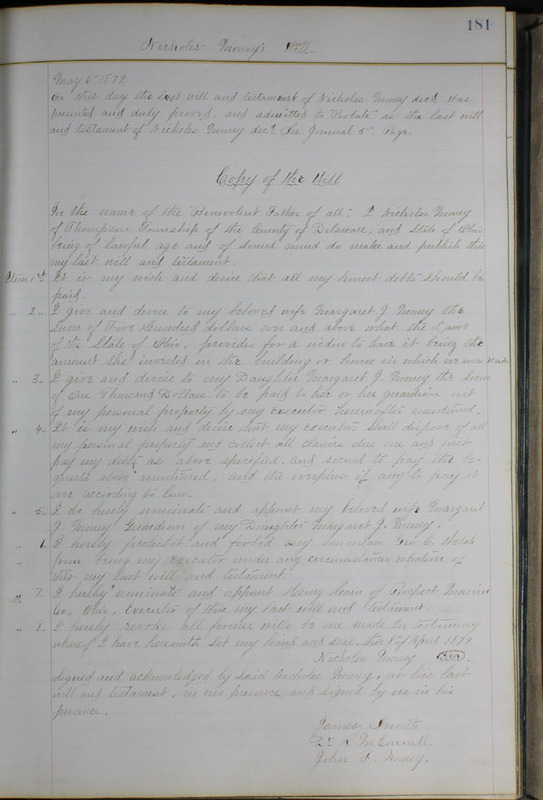 181
Nicholas Muney's Will.
May 6th 1879.
On this day the last will and testament of Nicholas Muney decd was
presented and duly proved, and admitted to Probate as the last will
and testament of Nicholas Muney decd. See Journal 5th Page.
Copy of the Will
In the name of the Benevolent Father of all: I Nicholas Muney
of Thompson Township of the County of Delaware, and State of Ohio
being of lawful age and of sound mind do make and publish this
my last will and testament.
Item 1st It is my wish and desire that all my honest debts should be
paid.
" 2. I give and devise to my beloved wife Margaret J. Muney the
sum of Five Hundred dollars over and above what the Laws
of the State of Ohio, provides for a widow to have it being the
amount she invested in the building or house in which we now reside
" 3. I give and devise to my Daughter Margaret J. Muney the sum
of One Thousand Dollars to be paid to her or her guardian out
of my personal property by my executor hereinafter mentioned.
" 4. It is my wish and desire that my executor shall dispose of all
my personal property and collect all claims due me and first
pay my debts as above specified, and second to pay the be-
quests above mentioned, and the overplus if any to pay it
over according to law.
" 5. I do hereby nominate and appoint my beloved wife Margaret
J. Muney Guardian of my Daughter Margaret J. Muney.
" 6. I hereby prohibit and forbid my son in law Geo. C. Welch
from being my executor under any circumstances whatever of
this my last will and testament.
" 7. I hereby nominate and appoint Henry of Prospect Marion
Co, Ohio, Executor of this my last will and testament.
" 8. I hereby revoke all former wills by me made. In testimony
whereof I have hereunto set my hand and seal, this 8th of April 1879
Nicholas Muney (seal).
Signed and acknowledged by said Nicholas Muney, as his last
will and testament, in our presence and signed by us in his
presence.
James Smith
R McConnell.
John F. Muney.